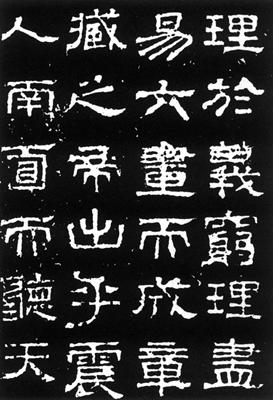 理於義窮理盡
易六畫而成章
藏之帝出乎震
人南面而聽天